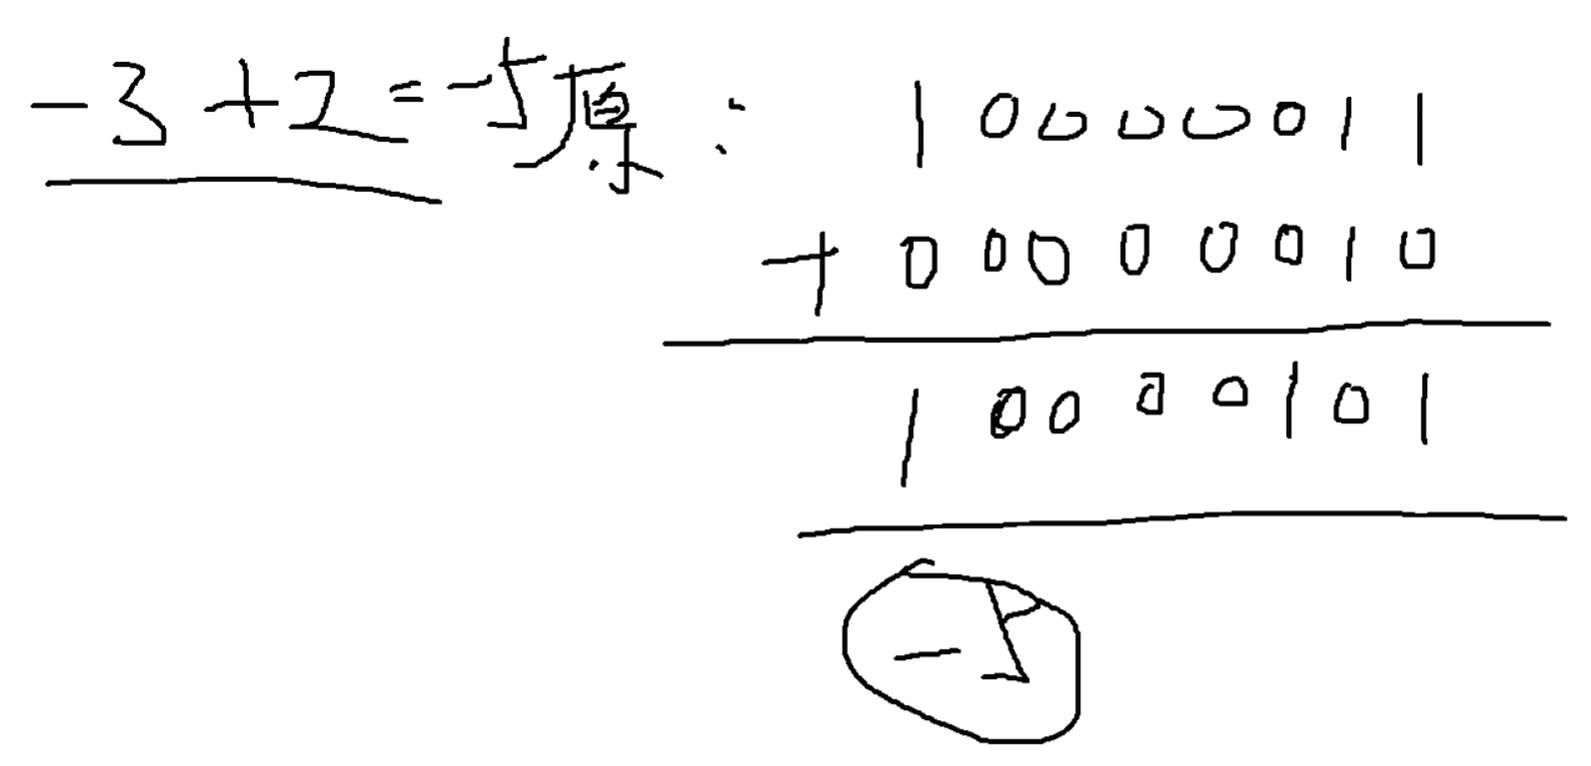 -3+2=-5原: 10000011
+ 00000010
10000101
-5